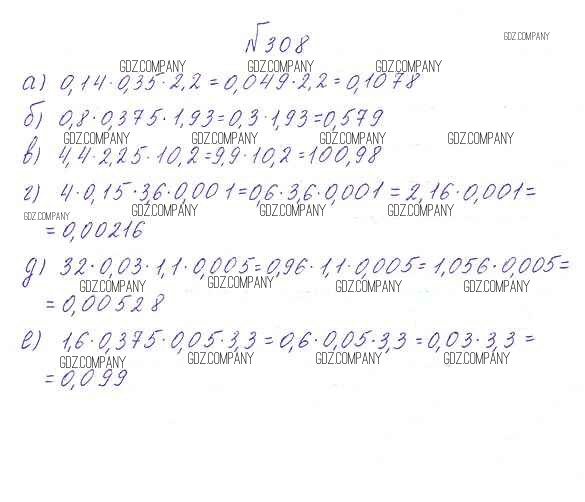 №308
GDZ.COMPANY
GDZ.COMPANY GDZ.COMPANY GDZ.COMPANY
а) 0,14·0,35·2,2=0,049·2,2=0,1078
б) 0,8·0,375·1,93=0,3·1,93=0,579
GDZ.COMPANY GDZ.COMPANY GDZ.COMPANY GDZ.COMPANY
в) 4,4·2,25·10,2=9,9·10,2=100,98
г) 4·0,15·3,6·0,001=0,6·3,6·0,001=2,16·0,001=
GDZ.COMPANY GDZ.COMPANY GDZ.COMPANY GDZ.COMPANY
=0,00216
д) 32·0,03·1,1·0,005=0,96·1,1·0,005=1,056·0,005=
GDZ.COMPANY GDZ.COMPANY GDZ.COMPANY GDZ.COMPANY
=0,00528
е) 1,6·0,375·0,05·3,3=0,6·0,05·3,3=0,03·3,3=
GDZ.COMPANY GDZ.COMPANY GDZ.COMPANY GDZ.COMPANY
=0,099